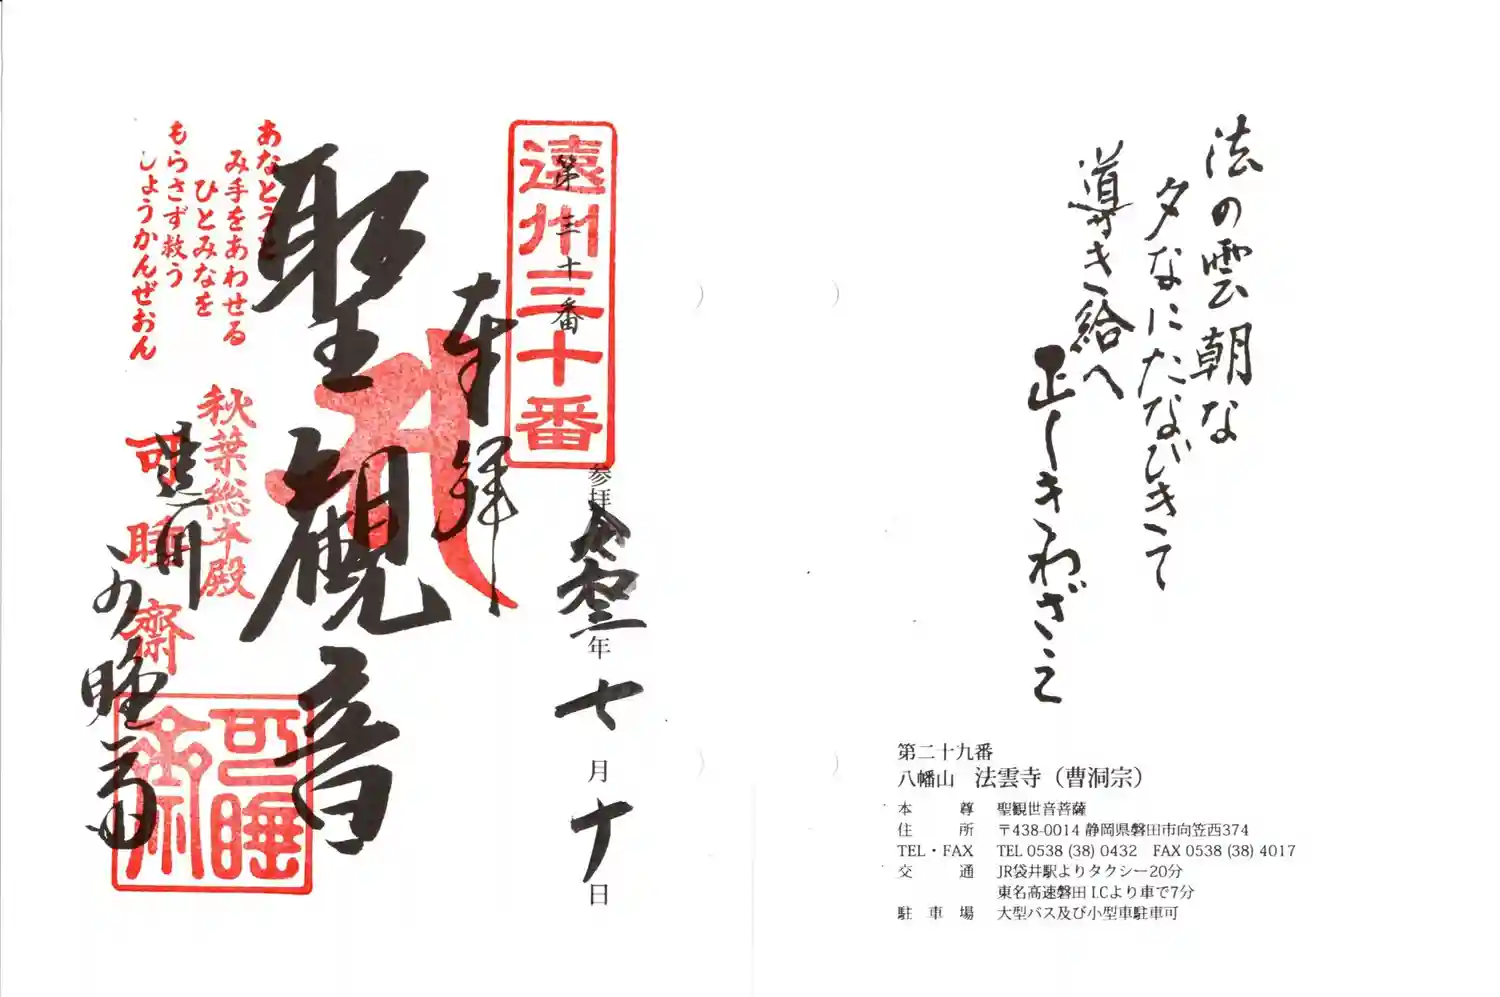 法の雲朝な
夕なにたなびきて
導き給へ
正しきわざこそ
第二十九番
八幡山 法雲寺（曹洞宗）
本尊 聖観世音菩薩
住所 〒438-0014 静岡県磐田市向笠西374
TEL・FAX TEL 0538 (38) 0432 FAX 0538 (38) 4017
交通 JR袋井駅よりタクシー20分
東名高速磐田 I.Cより車で7分
駐車場 大型バス及び小型車駐車可
遠州三十三番
第三十番
参拝
年
七
月
十
日
奉拝
聖観音
あなとうと
み手をあわせる
ひとみなを
もらさず救う
しょうかんぜおん
秋葉総本殿
可睡斎
可睡斎